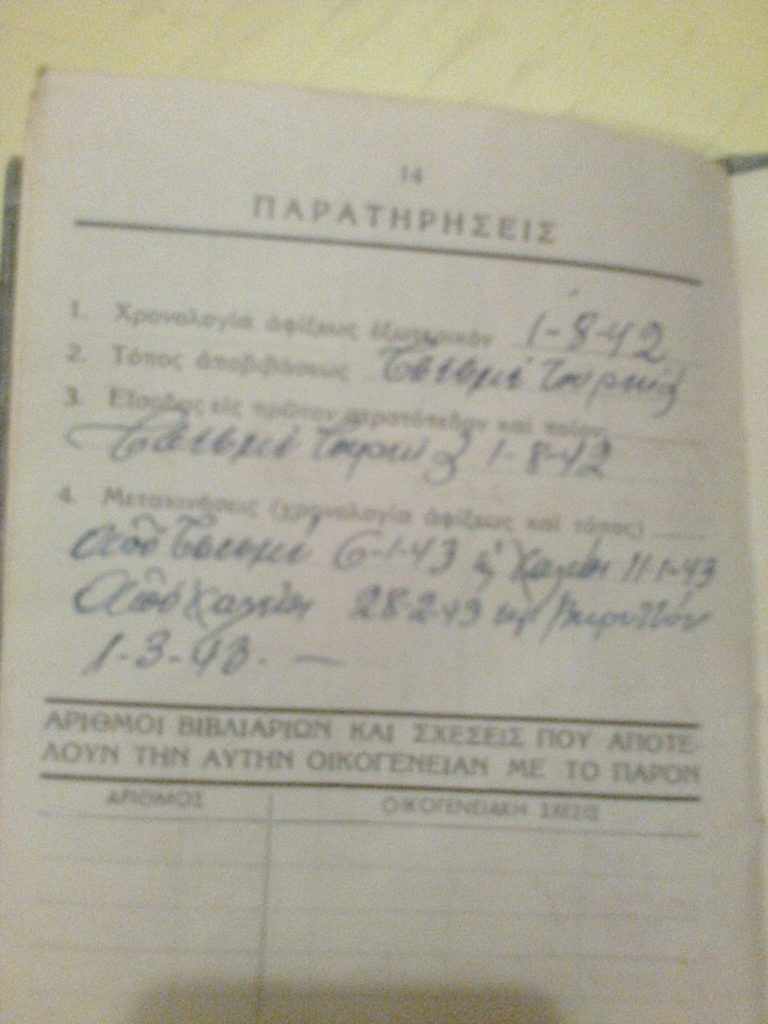 14
ΠΑΡΑΤΗΡΗΣΕΙΣ
1. Χρονολογία ἀφίξεως ἐξωτερικόν 1-8-42
2. Τόπος ἀποβιβάσεως Τσεσμέ Τουρκίας
3. Εἴσοδος εἰς πρῶτον στρατόπεδον καὶ ποῖον
Τσεσμέ Τουρκίας 1-8-42
4. Μετακινήσεις (χρονολογία ἀφίξεως καὶ τόπος)
ἀπὸ Τσεσμέ 6-1-43 Χαλέπι 11-1-43
ἀπὸ Χαλέπι 28-2-43 Βηρυττόν
1-3-43. —
ΑΡΙΘΜΟΙ ΒΙΒΛΙΑΡΙΩΝ ΚΑΙ ΣΧΕΣΕΙΣ ΠΟΥ ΑΠΟΤΕ-
ΛΟΥΝ ΤΗΝ ΑΥΤΗΝ ΟΙΚΟΓΕΝΕΙΑΝ ΜΕ ΤΟ ΠΑΡΟΝ
ΑΡΙΘΜΟΣ ΟΙΚΟΓΕΝΕΙΑΚΗ ΣΧΕΣΙΣ